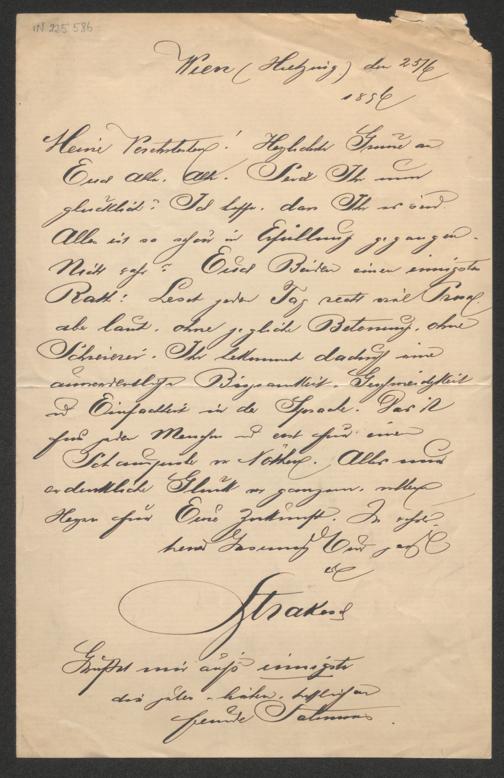 IN 225 586
Wien (Hietzing) den 25/6
189
Meine Verehrtesten! Herzlichste Grüsse an
Euch Alle. Alle. Seid Ihr nun
glücklich? Ich hoffe, dass Ihr es seid.
Alles ist so schön in Erfüllung gegangen.
Nicht wahr? Euch Beiden einen innigsten
Rath: Leset jeden Tag recht viel Prosa,
aber laut, ohne jegliche Betonung, ohne
Schreierei. Ihr bekommt dadurch eine
ausserordentliche Biegsamkeit, Geschmeidigkeit
und Einfachheit in der Sprache. Das ist
für jeden Menschen und erst für einen
Schauspieler von Nöthen. Alles nur
erdenkliche Glück von ganzem, vollem
Herzen für Eure Zukunft. In
Euer
Strakosch
Grüsst mir aufs innigste
die guten, lieben, trefflichen
Freunde